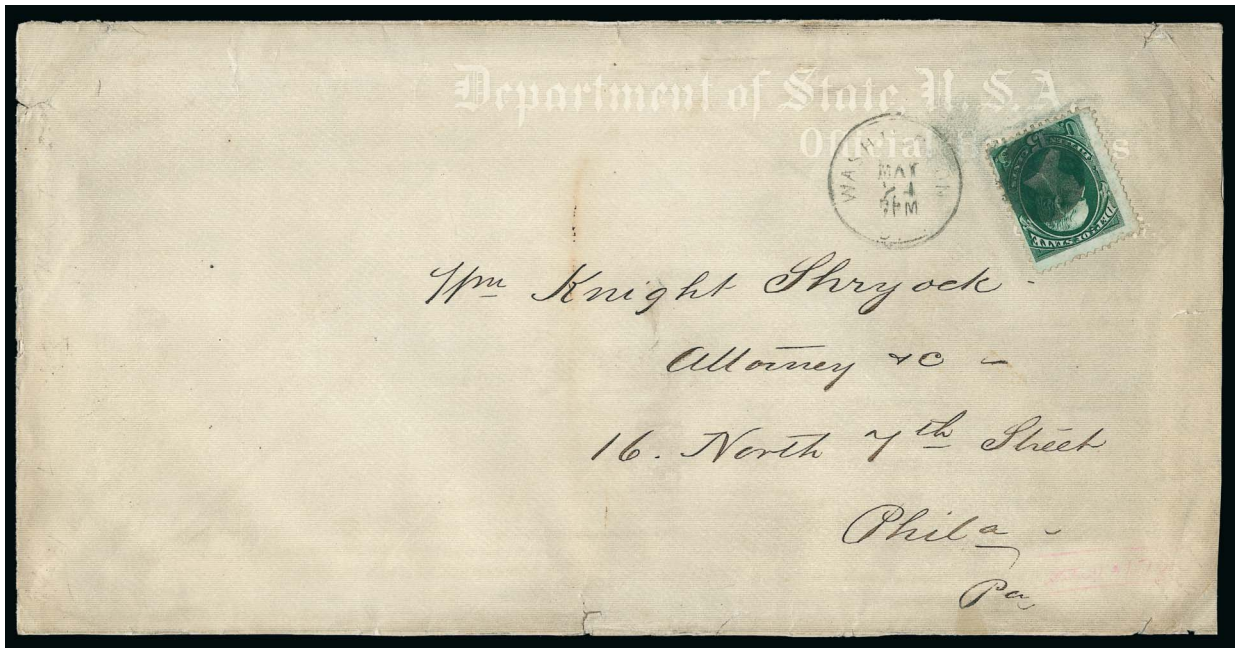 Department of State, U.S.A.
Official
WASHINGTON
MAY
24
9PM
Wm Knight Shryock -
Attorney &c -
16. North 7th Street
Phila -
Pa